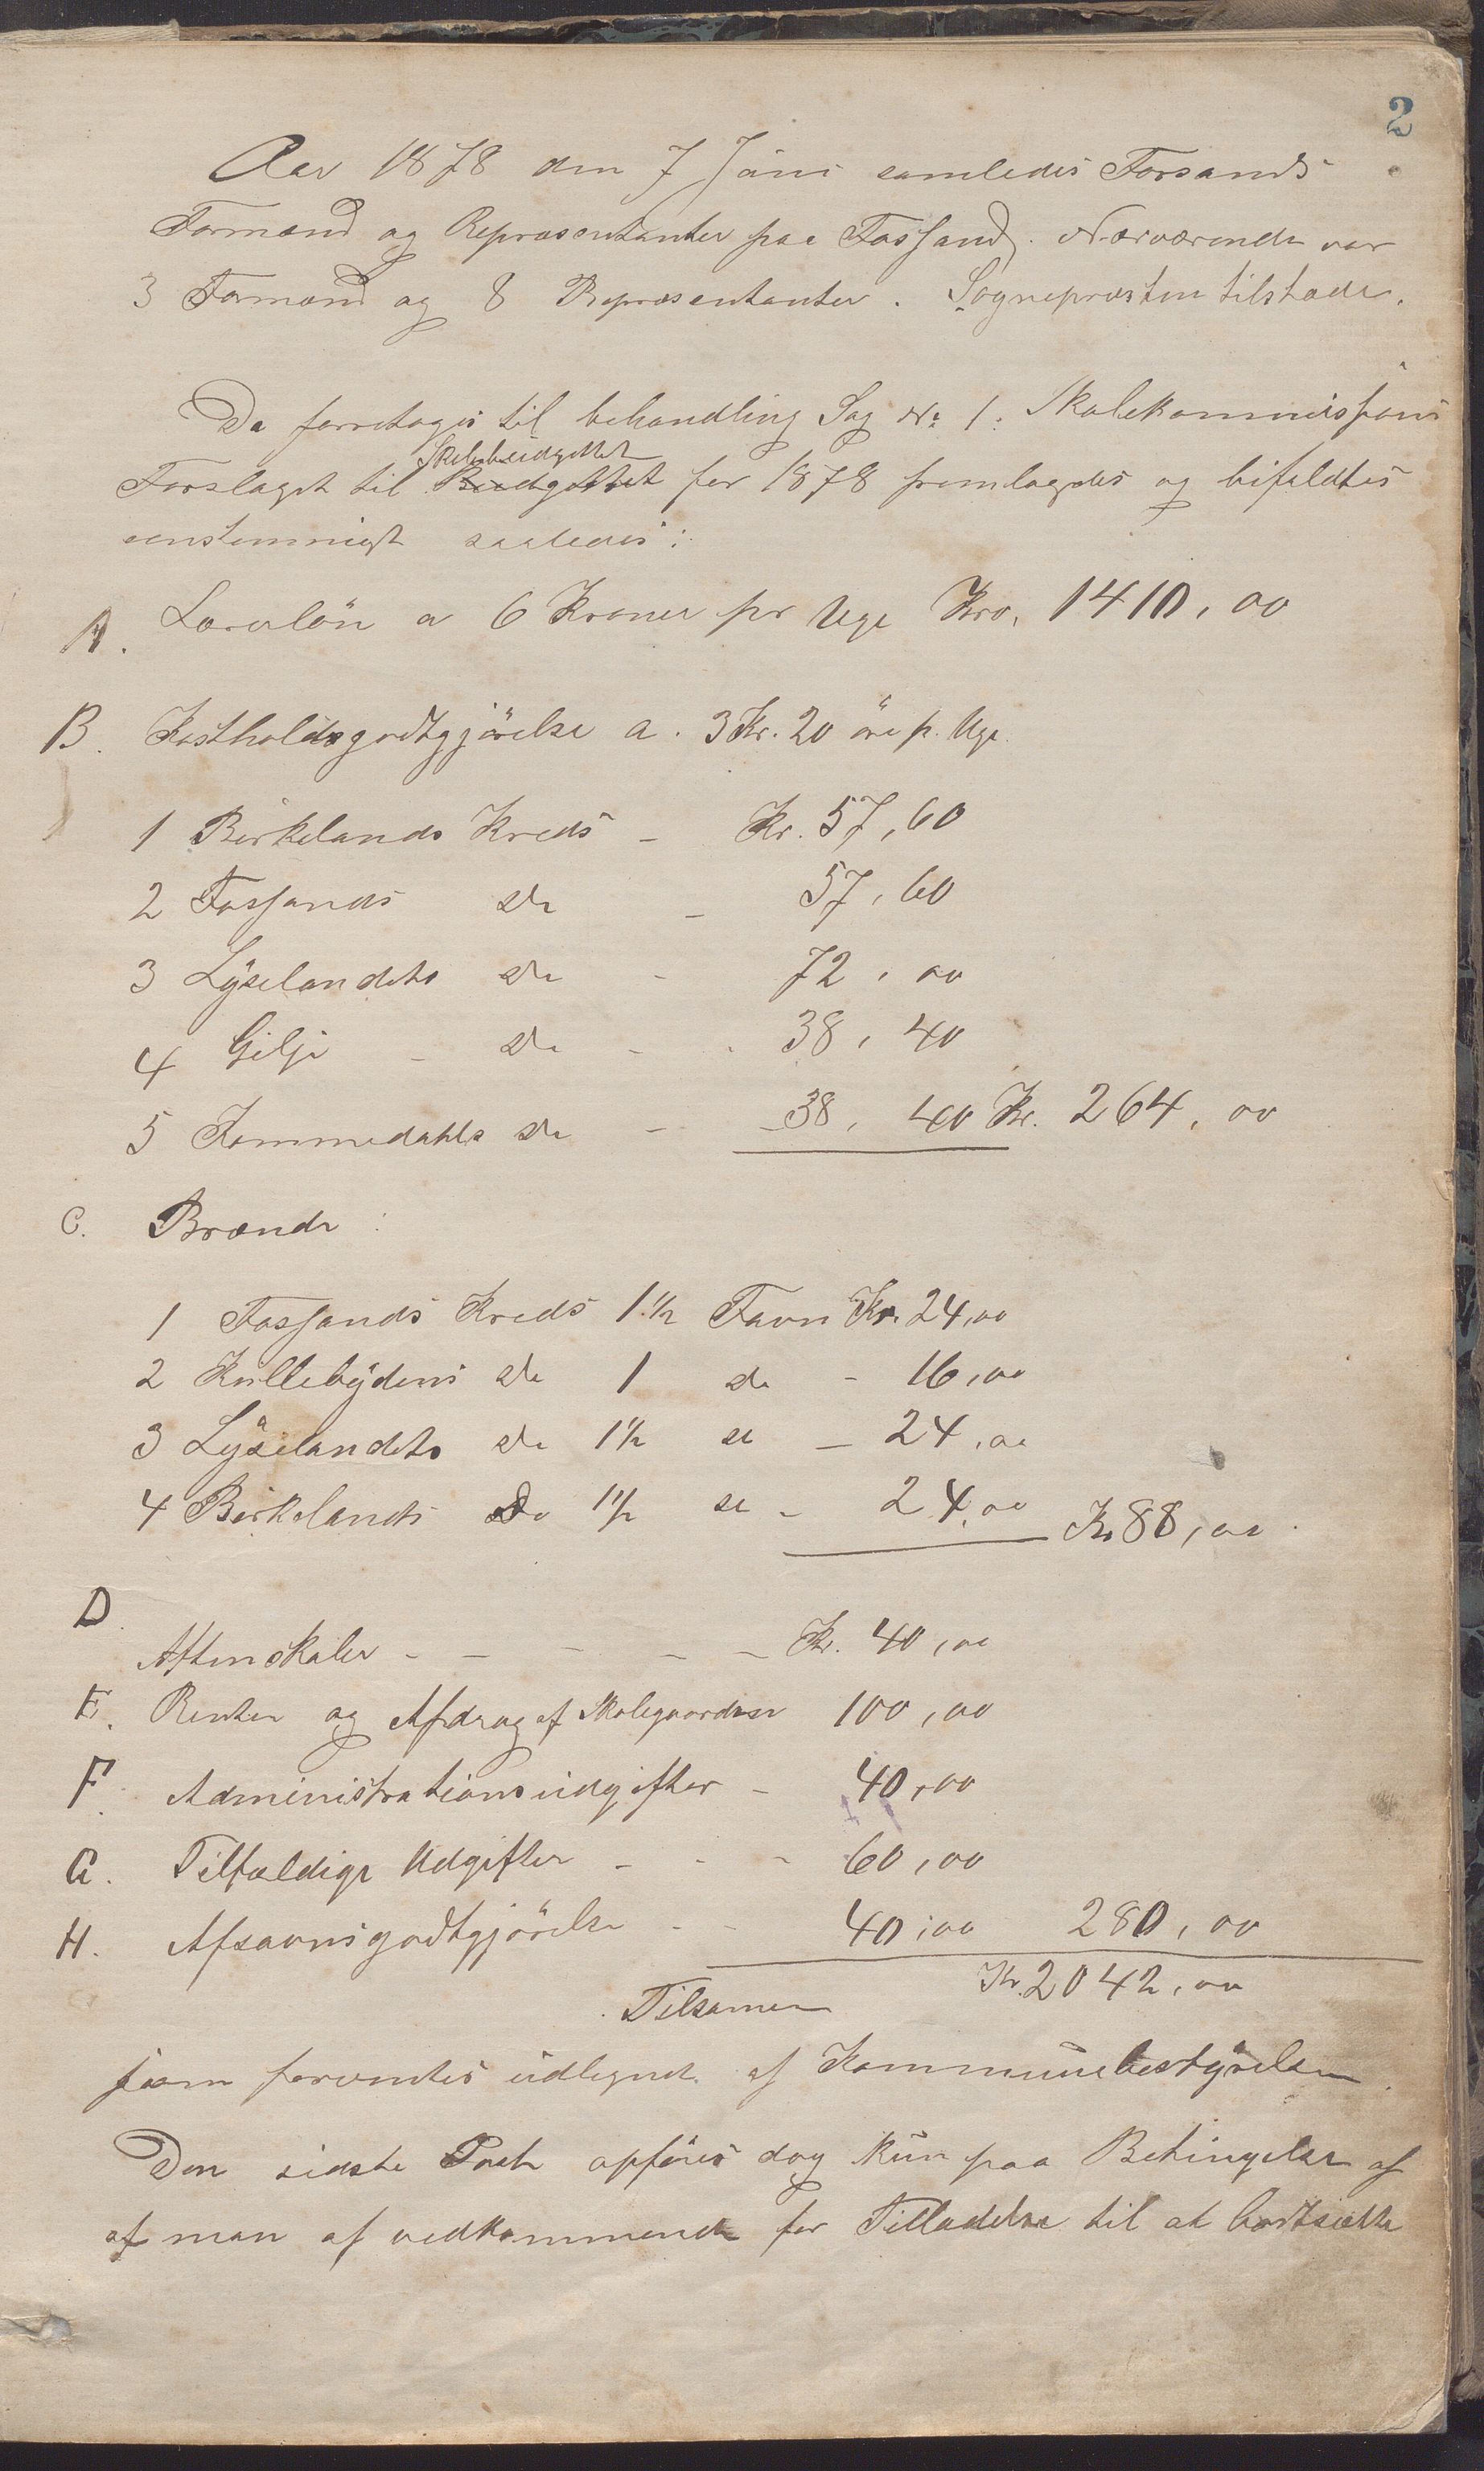 2
Aar 1878 den 7 Juni samledes Forsands
Formænd og Repræsentanter paa Fossand. Nærværende var
3 Formænd og 8 Repræsentanter. Sognepresten tilstæde.
Da forretoges til behandling Sag No 1: Skolekommissjons
Skolebudgettet
Forslaget til Budgettet for 1878 fremlagdes og bifaldtes
eenstemmigt saaledes:
A. Lærerlön a 6 Kroner pr Uge Kro. 1410,00
B. Kostholdsgodtgjörelse a. 3 Kr. 20 öre p. Uge
1 Birkelands Kreds - Kr. 57,60
2 Fossands do - 57,60
3 Lyselandets do - 72,00
4 Gilje - do - - 38,40
5 Kommedahls do - - 38,40 Kr. 264,00
C. Brænde:
1 Fossands Kreds 1 1/2 Favn Kr. 24,00
2 Kollebydens do 1 do - 16,00
3 Lyselandets do 1 1/2 do - 24,00
4 Birkelands do 1 1/2 do - 24,00 Kr 88,00.
D.
Aftenskoler - - - - - Kr. 40,00
E. Renter og Afdrag af Skolegaarden 100,00
F. Administrationsudgifter - 40,00
G. Tilfældige Udgifter - - - 60,00
H. Afsavnsgodtgjörelse - - 40,00 280,00
Tilsamen Kr. 2042,00
som forventes udlignet af Kommunebestyrelsen.
Den sidste Post opföres dog kun paa Betingelse af
at man af vedkommende for Tilladelse til at bortsætte